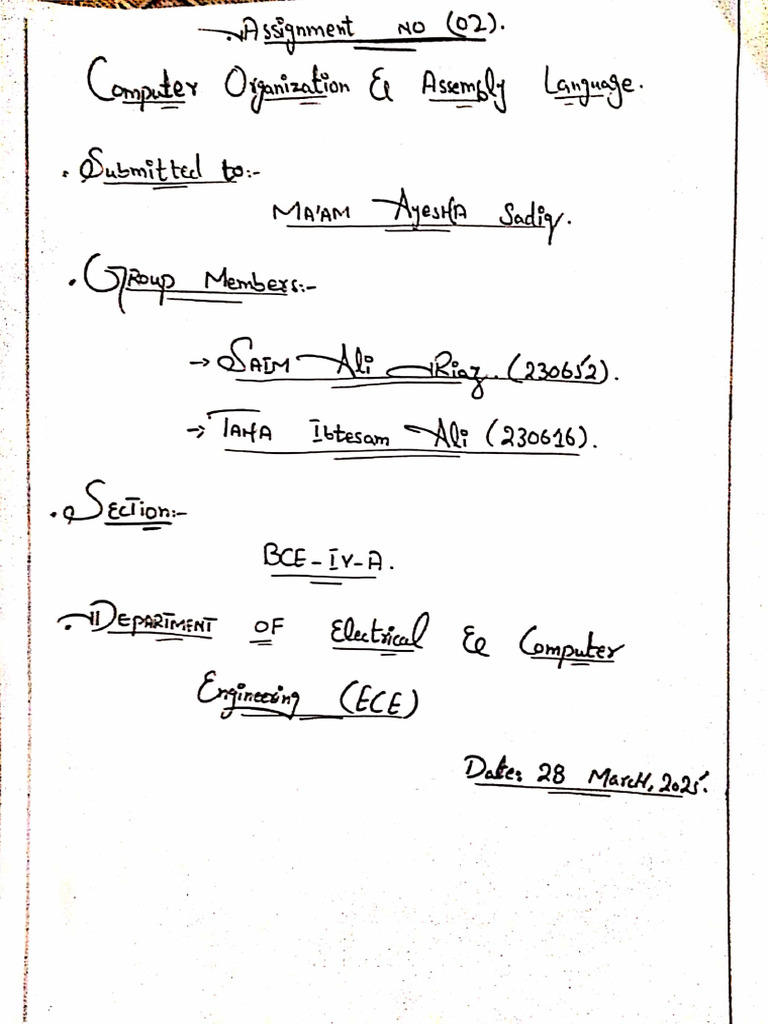 Assignment NO (02).
Computer Organization & Assembly Language.
. Submitted to:-
MA'AM AyeshA Sadiq.
. Group Members:-
→ SAIM Ali Riaz. (230652).
→ TAHA Ibtesam Ali (230616).
. Section:-
BCE-IV-A.
. DEPARTMENT OF Electrical & Computer
Engineering (ECE)
Date: 28 March, 2025.